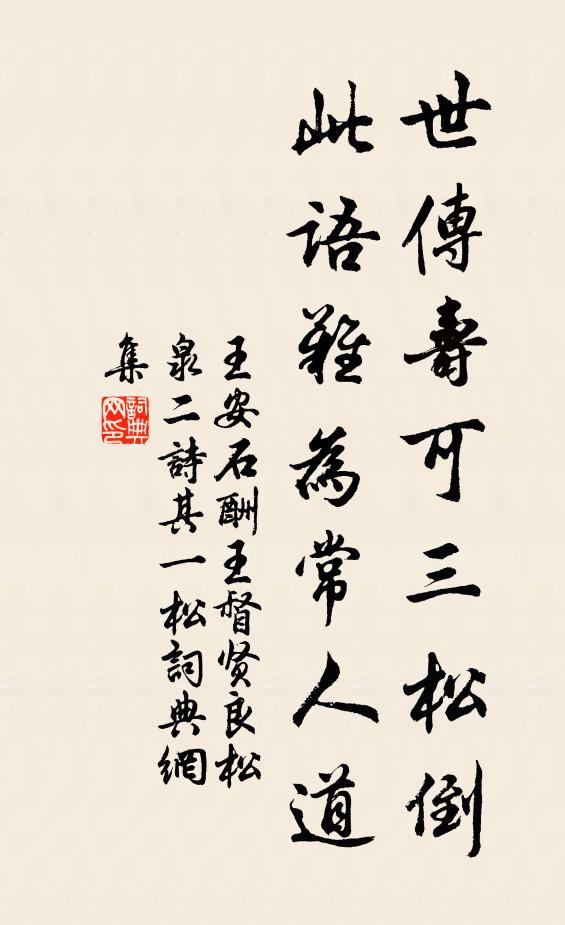 世傳壽可三松倒
此語難為常人道
王安石酬王督贤良松
泉二詩其一松詞典網
集
詞典
网印